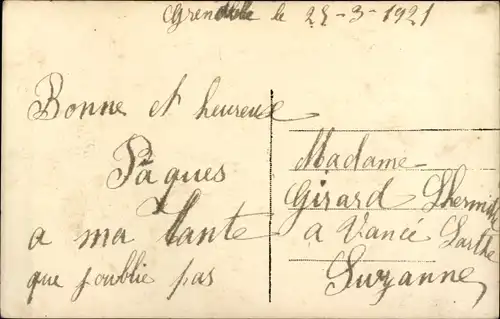 Grenoble le 25-3-1921
Bonne et heureuse
Pâques
a ma tante
que j'oublie pas
Madame
Girard Lhermitte
a Vancé Sarthe
Suzanne